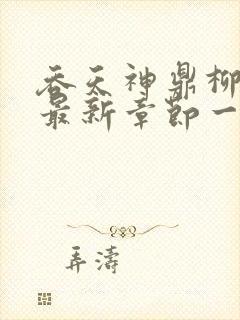 吞天神鼎柳
最新章节一
弄濤